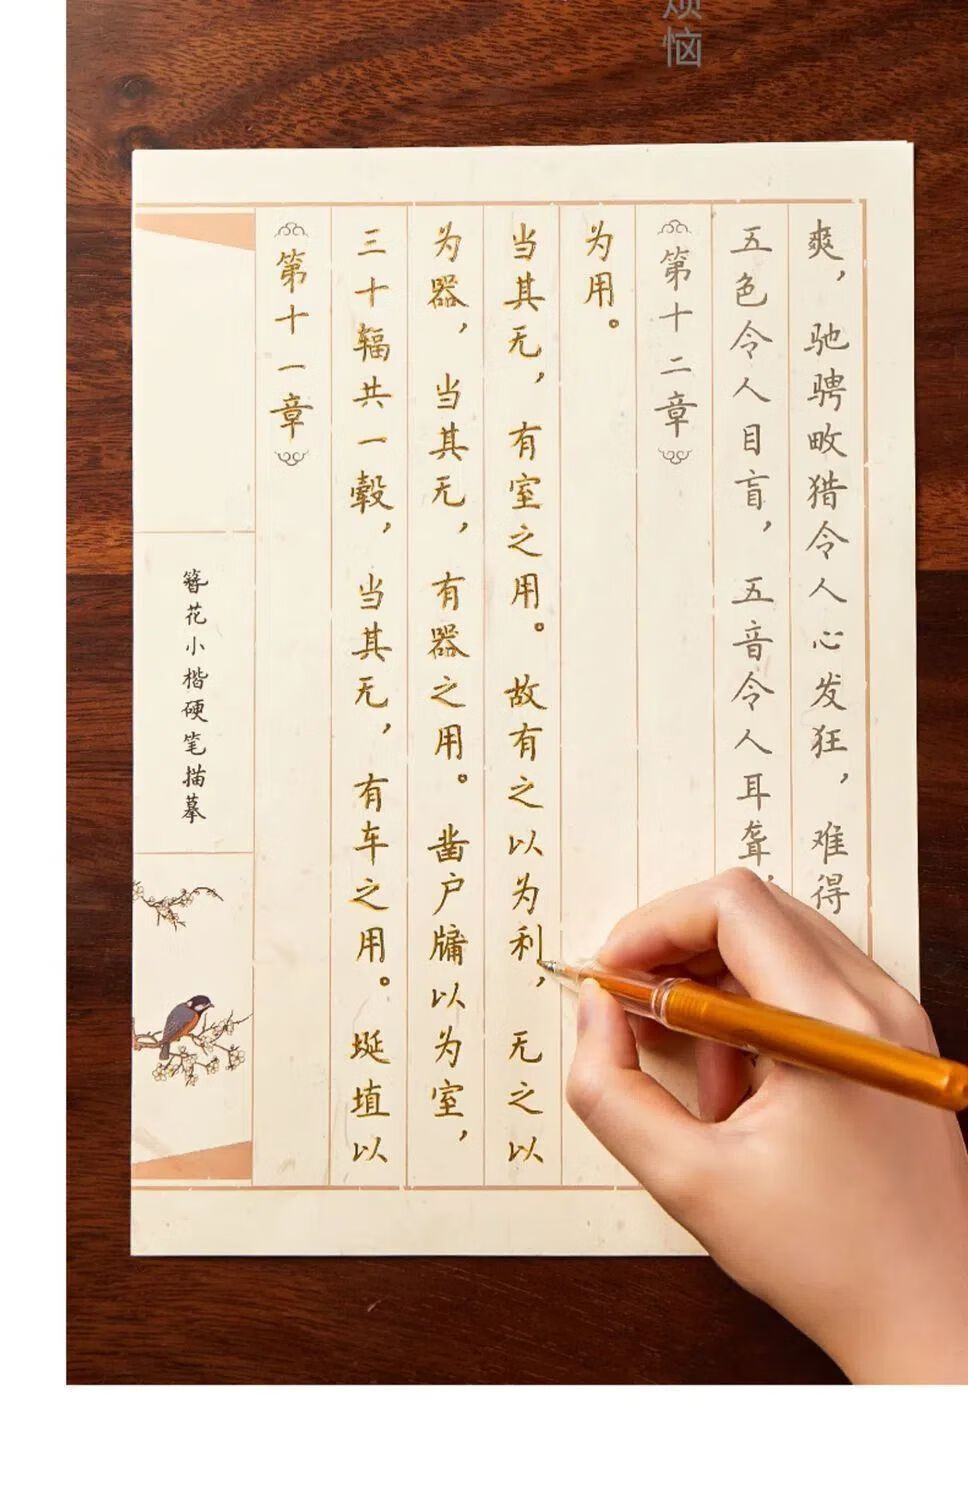 烦恼
簪花小楷硬笔描摹
第十一章
三十辐共一毂，当其无，有车之用。埏埴以
为器，当其无，有器之用。凿户牖以为室，
当其无，有室之用。故有之以为利，无之以
为用。
第十二章
五色令人目盲，五音令人耳聋，
爽，驰骋畋猎令人心发狂，难得